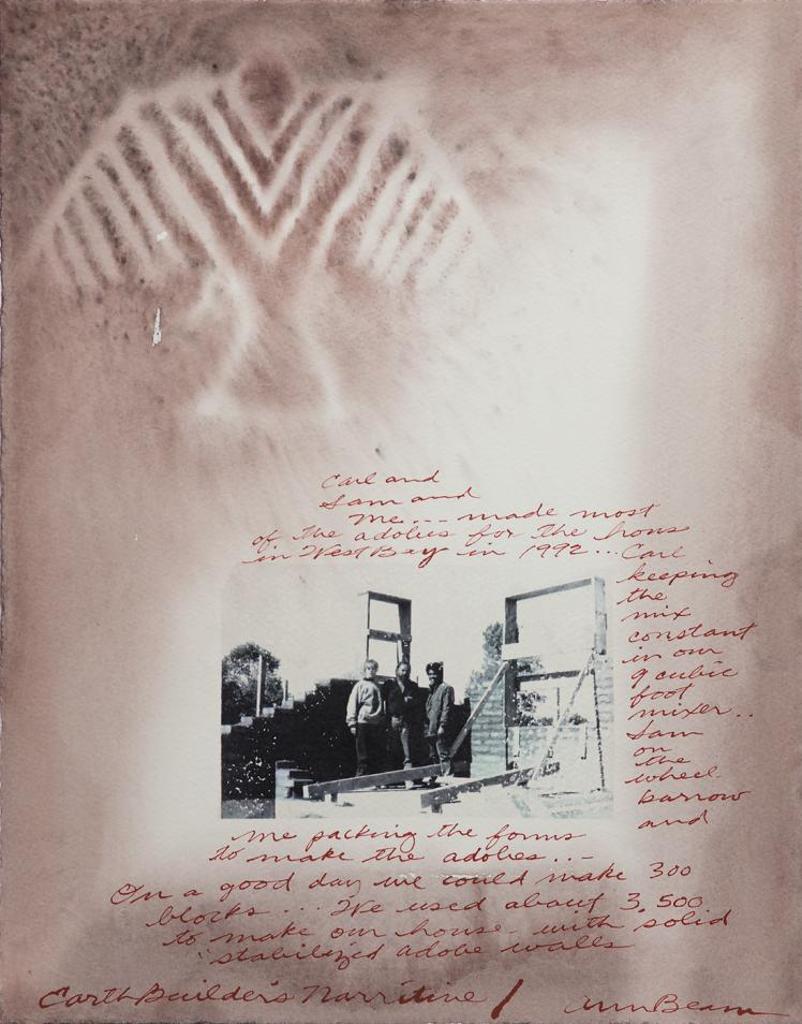 Carl and
Sam and
me... made most
of the adobes for the hous
in West Bay in 1992... Carl
keeping
the
mix
constant
in our
9 cubic
foot
mixer..
Sam
on
the
wheel
barrow
and
me packing the forms
to make the adobes...
On a good day we could make 300
blocks... We used about 3,500
to make our house with solid
stabilized adobe walls
Earth Builder's Narritive / Ann Beam